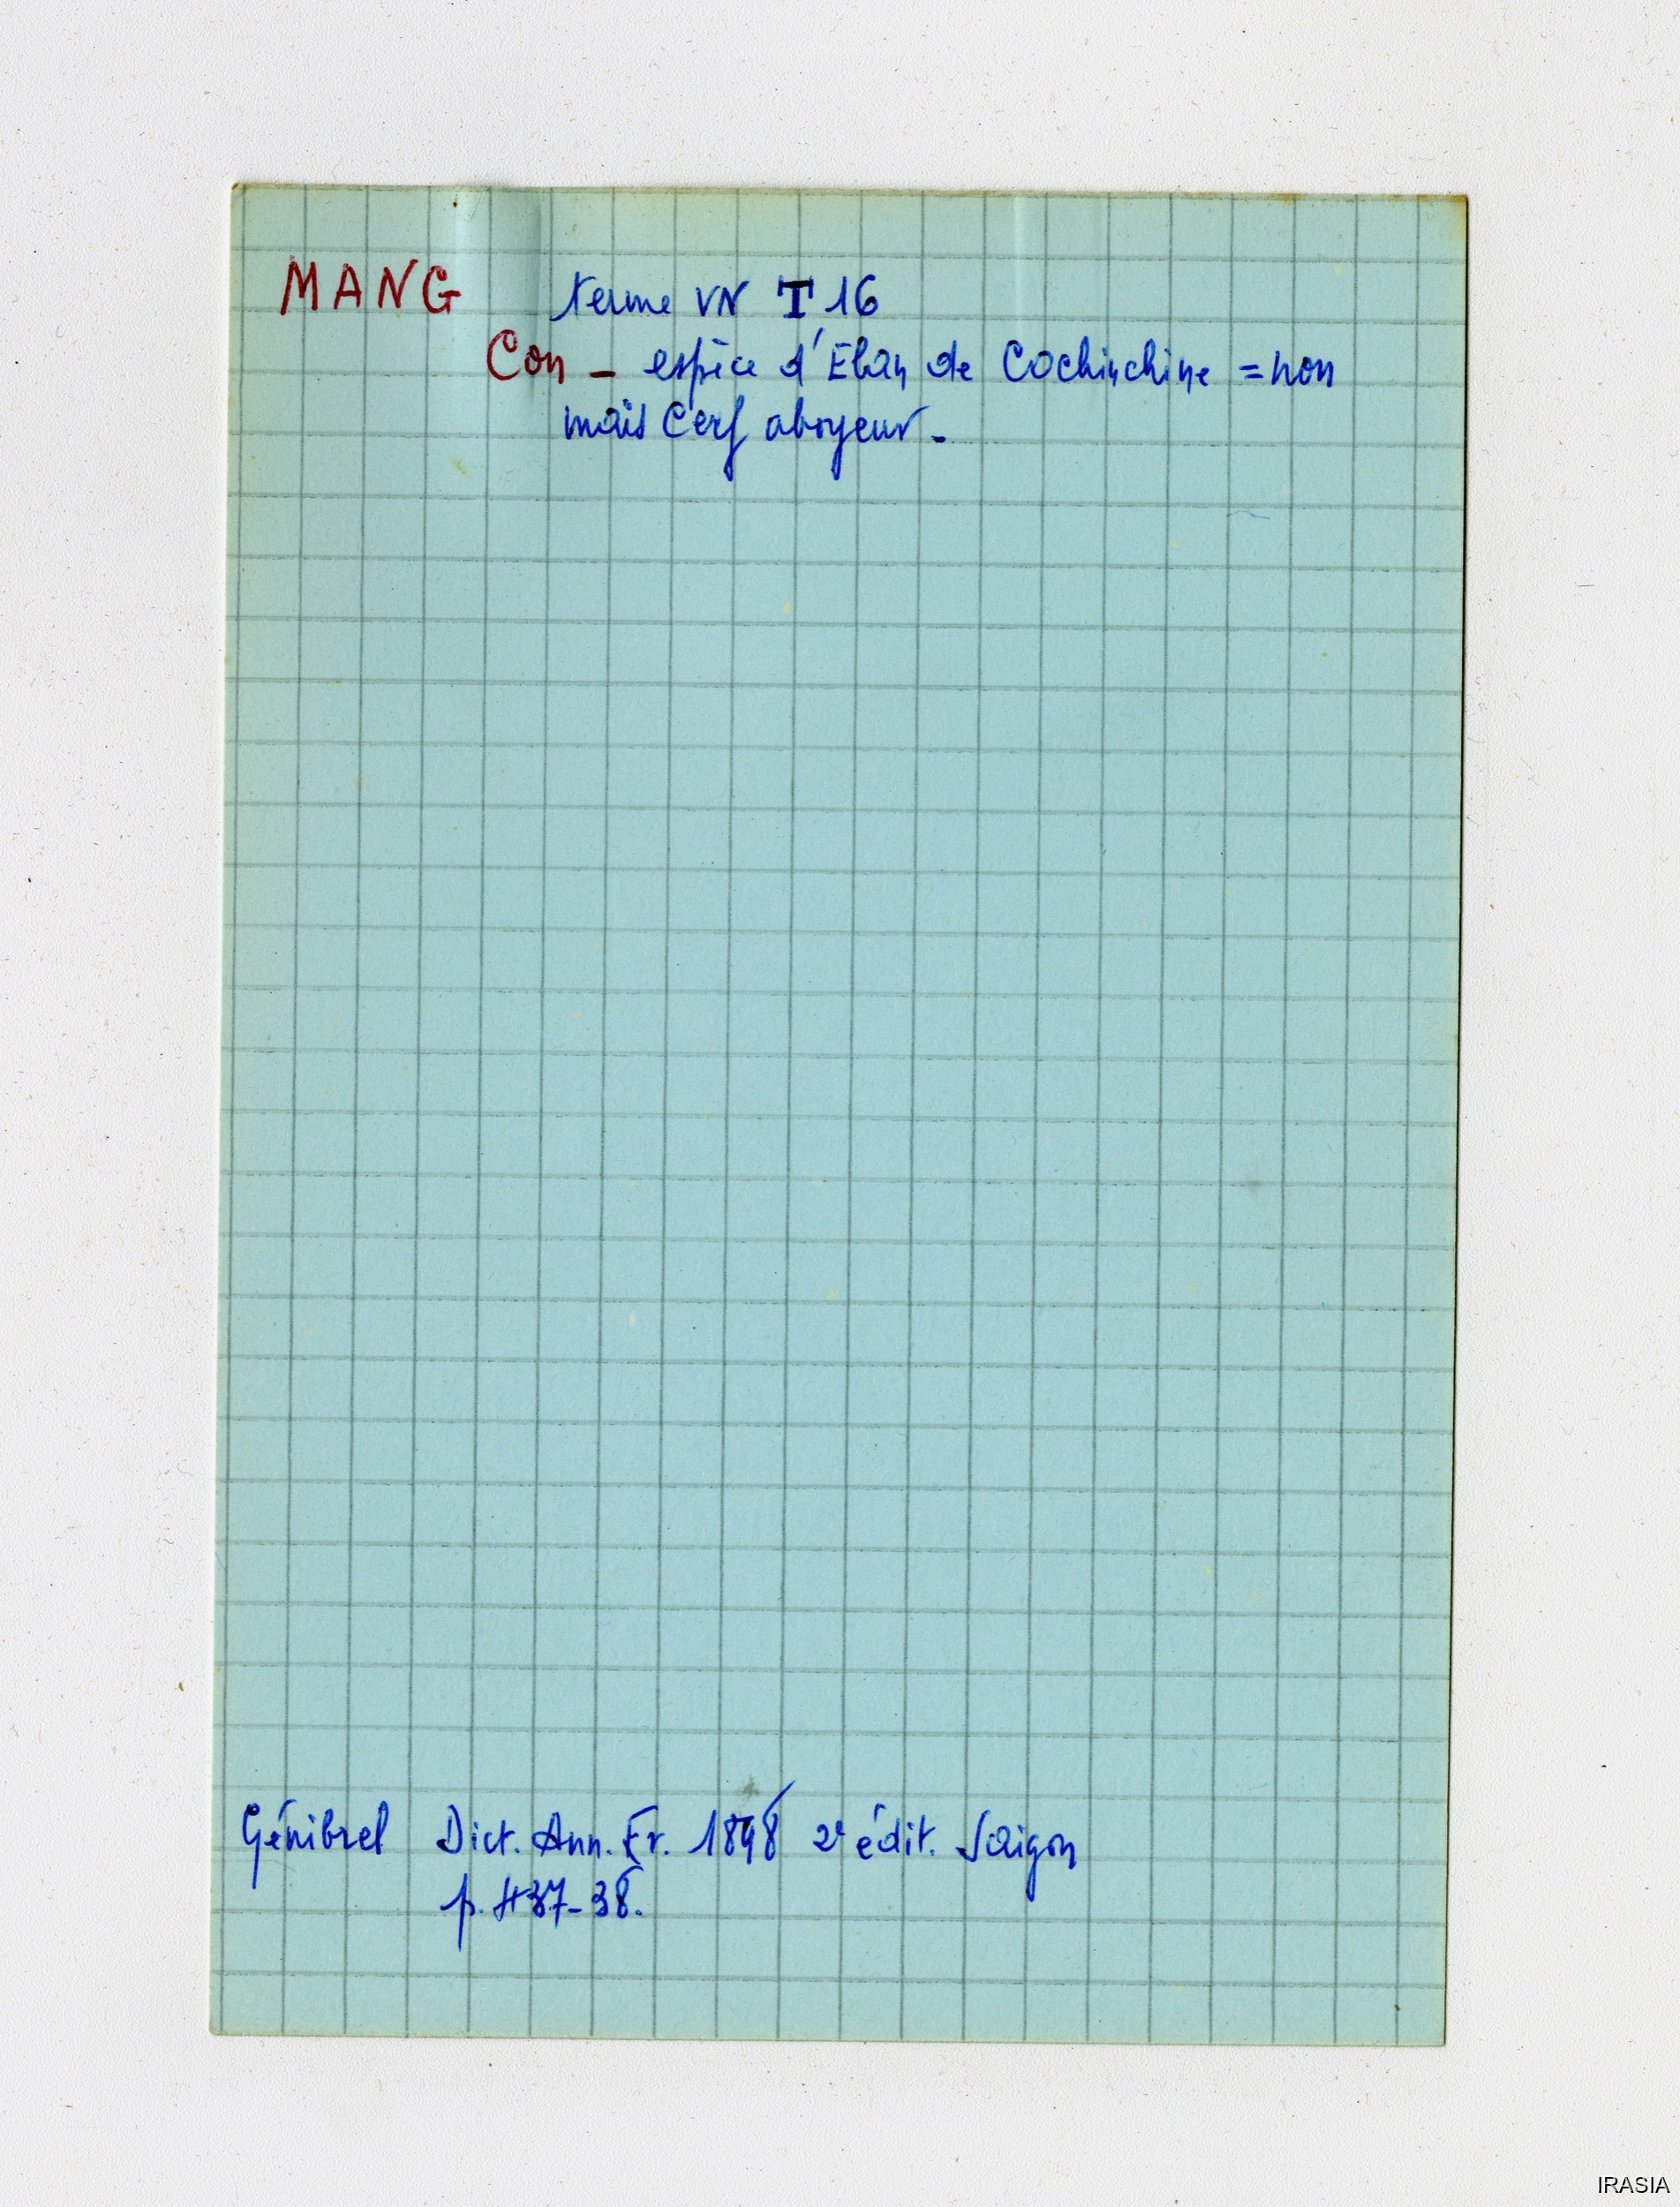 MANG terme VN T 16
Con – espèce d'Elan de Cochinchine = non
mais Cerf aboyeur.
Génibrel Dict. Ann. Fr. 1898 2e édit. Saigon
p. 437-38.
IRASIA